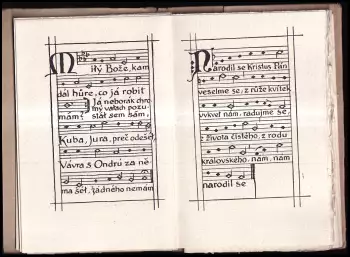 Milý Bože, kam
dál hůře, co já robit
mám? Já neborák chro-
mý valach pozu-
stát sem sám,
Kuba, Jura, preč odešel,
Vávra s Ondrú za ně-
ma šel, žádného nemám
Narodil se Kristus Pán
veselme se, z růže kvítek
vykvet nám, radujme se,
z života čistého, z rodu
královského, nám, nám
narodil se